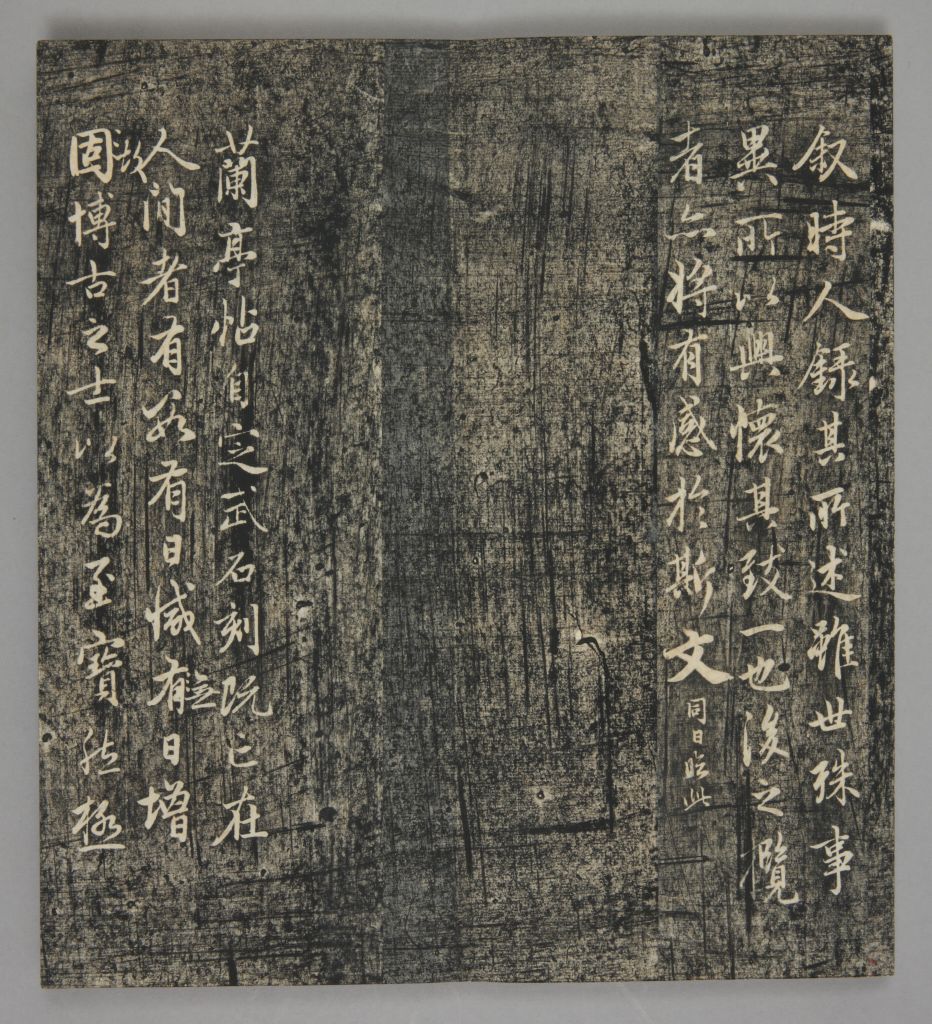 叙時人録其所述雖世殊事
異所以興懷其致一也後之攬
者亦將有感於斯文 同日臨此
蘭亭帖自定武石刻既亡在
人間者有數有日減有無日增
固故博古之士以為至寶然極